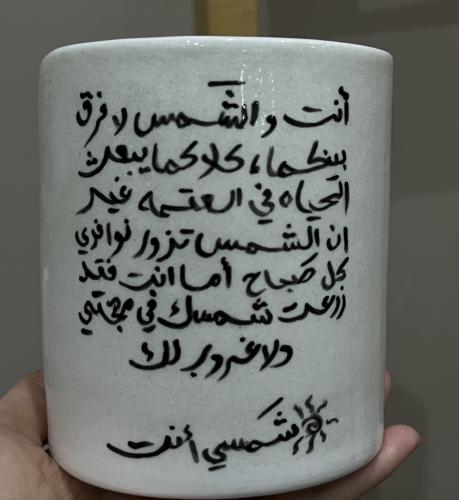 أنت و الشمس لا فرق
بينكما، كلاكما يبعث
الحياه في العتمه غير
ان الشمس تزور نوافذي
بكل صباح أما انت فقد
زرعت شمسك في مهجتي
ولا غروب لك
شمسي أنت